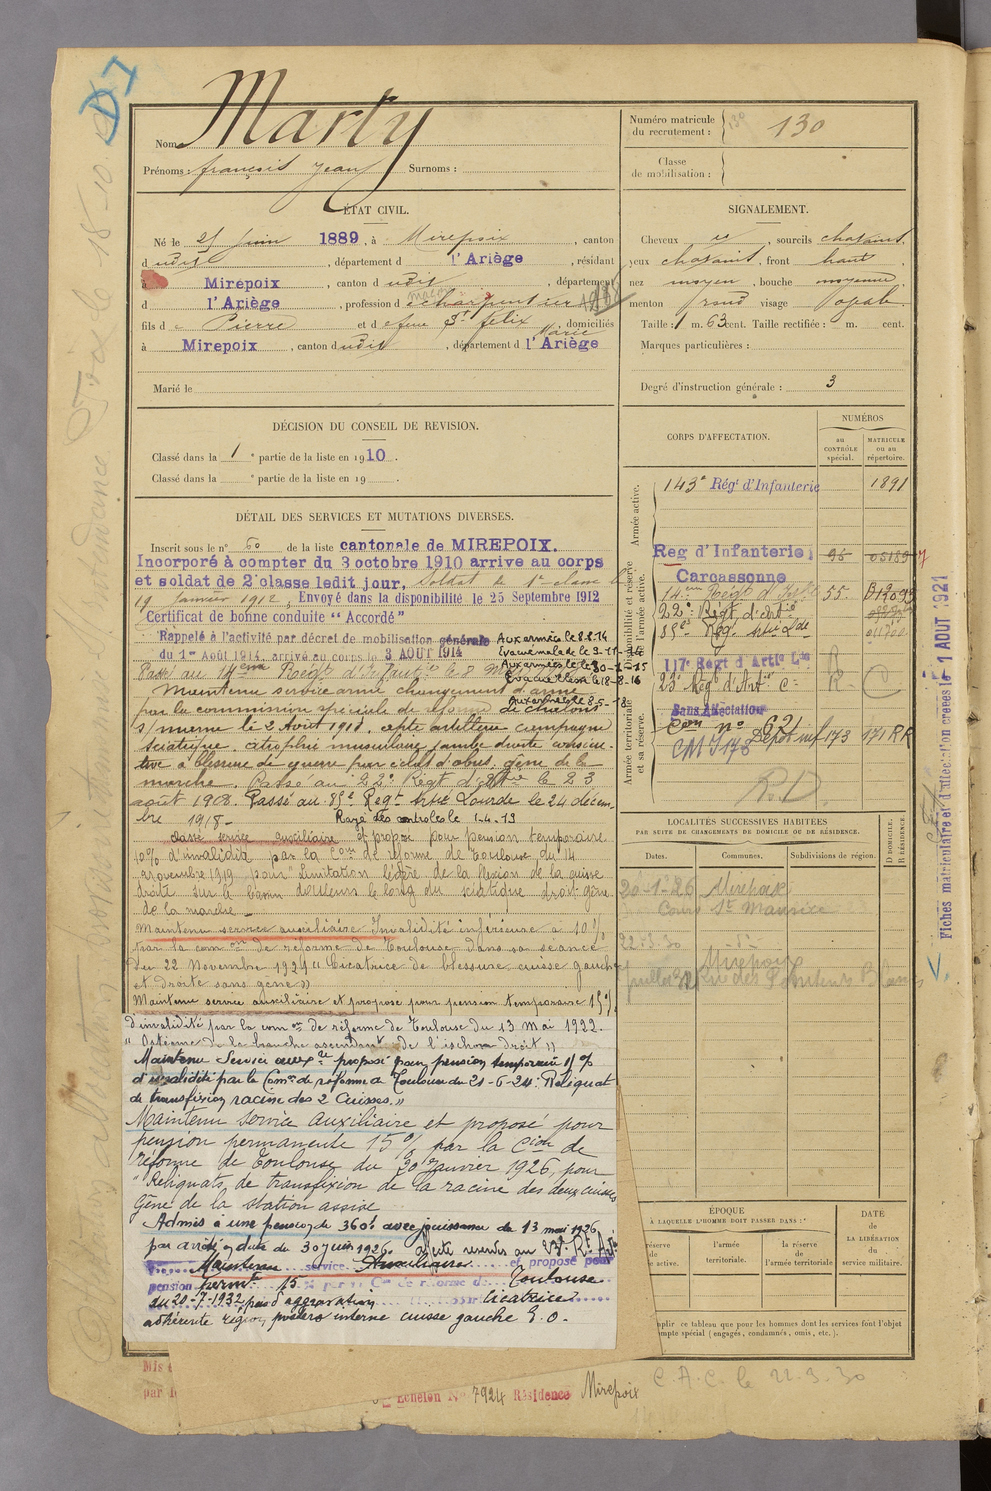 Nom Marty
Prénoms : françois Jean Surnoms :
Numéro matricule du recrutement : 130
Classe de mobilisation :
ÉTAT CIVIL.
Né le 25 Juin 1889, à Mirepoix, canton
dudit, département d l'Ariège, résidant
à Mirepoix, canton dudit, département
d l'Ariège, profession de charpentier
fils de Pierre et de feue St felix Marie domiciliés
à Mirepoix, canton dudit, département d l'Ariège
Marié le
SIGNALEMENT.
Cheveux, sourcils chatains.
yeux chatains, front haut
nez moyen, bouche moyenne
menton rond visage ovale.
Taille : 1 m. 63 cent. Taille rectifiée : m. cent.
Marques particulières :
Degré d'instruction générale : 3
DÉCISION DU CONSEIL DE REVISION.
Classé dans la 1e partie de la liste en 1910.
Classé dans la e partie de la liste en 19
DÉTAIL DES SERVICES ET MUTATIONS DIVERSES.
Inscrit sous le n° 60 de la liste cantonale de MIREPOIX.
Incorporé à compter du 3 octobre 1910 arrive au corps
et soldat de 2e classe ledit jour. Soldat de 1e classe le
19 Janvier 1912. Envoyé dans la disponibilité le 25 Septembre 1912
Certificat de bonne conduite "Accordé"
Rappelé à l'activité par décret de mobilisation générale
du 1er Août 1914, arrivé au corps le 3 AOUT 1914
Aux armées le 8.8.14
Evacué malade le 3-11-14
Aux armées le
Evacué blessé le 18-8-16
Aux armées le 8-5-18
Passé au 14ème Régt d'Infanterie le 8
Maintenu service armé changement d'arme
par la commission spéciale de réforme de Chalons
s/marne le 2 Août 1918. apte artillerie campagne
Sciatique, atrophie musculaire jambe droite consécu-
tive à blessure de guerre par éclat d'obus, gêne de la
marche. Passé au 22e Régt d'Artie le 23
août 1908. Passé au 85e Régt Artie Lourde le 24 décem-
bre 1918- Rayé des contrôles le 1-4-19
Classé service auxiliaire et proposé pour pension temporaire
10% d'invalidité par la Com de réforme de Toulouse du 14
novembre 1919 pour "Limitation légère de la flexion de la cuisse
droite sur le bassin douleurs le long du sciatique droit gêne
de la marche
Maintenu service auxiliaire Invalidité inférieure à 10%
par la com on de réforme de Toulouse dans sa séance
du 22 Novembre 1921 "Cicatrice de blessure cuisse gauche
et droite sans gêne"
Maintenu service auxiliaire et proposé pour pension temporaire 15%
d'invalidité par la com on de réforme de Toulouse du 13 mai 1922.
"Ostéome de la branche ascendante de l'ischion droit"
Maintenu Service auxre proposé pour pension temporaire 15%
d'invalidité par la Comon de réforme de Toulouse du 21-6-24: "Reliquat
de transfixion racine des 2 Cuisses."
Maintenu service auxiliaire et proposé pour
pension permanente 15% par la Cion de
réforme de Toulouse du 30 Janvier 1926, pour
"Reliquats de transfixion de la racine des deux cuisses
Gêne de la station assise
Admis à une pension de 360f avec jouissance du 13 mai 1926
par arrêté en date du 30 juin 1926.
Maintenu service Auxiliaire et proposé pour
pension permte 15% par la Con de réforme de Toulouse
du 20-7-1932, pas d'aggravation pour Cicatrices
adhérente région postéro interne cuisse gauche E.O.
CORPS D'AFFECTATION.
NUMÉROS
au CONTRÔLE spécial.
MATRICULE ou au répertoire.
Armée active.
143e Régt d'Infanterie 1891
Disponibilité et réserve de l'armée active.
Reg d'Infanterie 95
Carcassonne
14eme Régt d'Infie 55
22e Régt d'Artie
85e Rég. Artie Lde
117e Régt d'Artie Lde R
23e Régt d'Artie C R
Armée territoriale et sa réserve.
Sans Affectation
Con n° 621
CM J 178 Dépôt inf 173 171 RR
R.D.
LOCALITÉS SUCCESSIVES HABITÉES
PAR SUITE DE CHANGEMENTS DE DOMICILE OU DE RÉSIDENCE.
Dates. Communes. Subdivisions de région. D DOMICILE. R RÉSIDENCE.
20-1-26 Mirepoix
Cours St Maurice
22-3-30 -d-
Mirepoix
ÉPOQUE
À LAQUELLE L'HOMME DOIT PASSER DANS :
réserve de active.
l'armée territoriale.
la réserve de l'armée territoriale
DATE de LA LIBÉRATION du service militaire.
mplir ce tableau que pour les hommes dont les services font l'objet
mpte spécial (engagés, condamnés, omis, etc.).
Echelon N° 7924 Résidence Mirepoix
C.A.C. le 22.3.30
Fiches matriculaire et d'affectation créées le 1 AOUT 1921